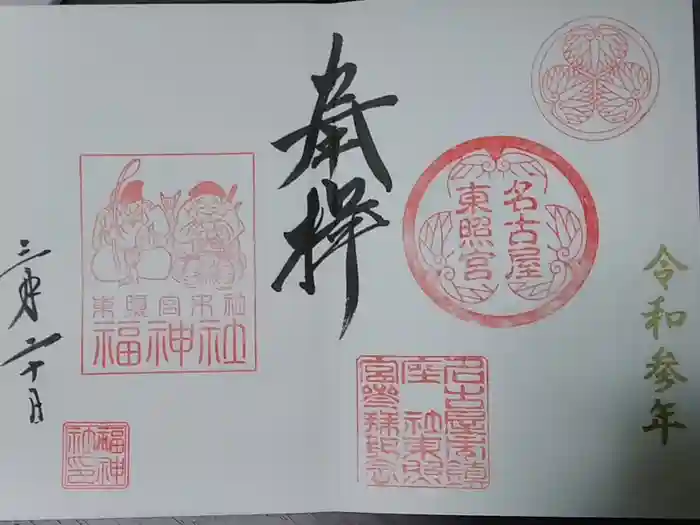 令和参年
名古屋
東照宮
名古屋御鎮
座 社東照
宮参拝記念
奉拝
東照宮末社
福神社
福神
社印
三月二十日